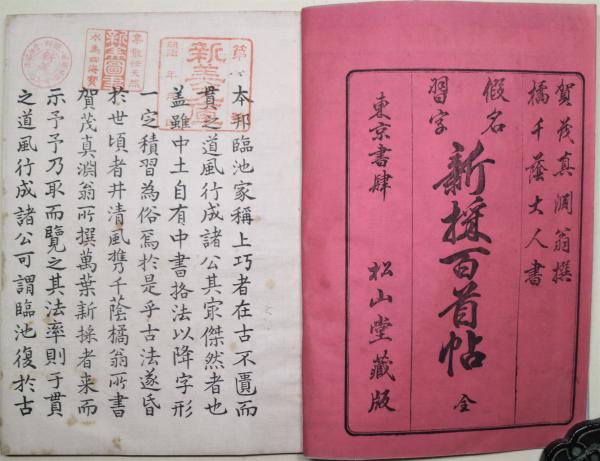 賀茂真淵翁撰
橘千蔭大人書
假名
習字
新採百首帖 全
東京書肆 松山堂藏版
本邦臨池家稱上巧者在古不匱而
貫之道風行成諸公其最傑然者也
盖雖中土自有中書挌法以降字形
一定積習為俗焉於是乎古法遂昏
於世頃者井清風携千蔭橘翁所書
賀茂真淵翁所撰萬葉新採者来而
示予予乃取而覽之其法率則于貫
之道風行成諸公可謂臨池復於古